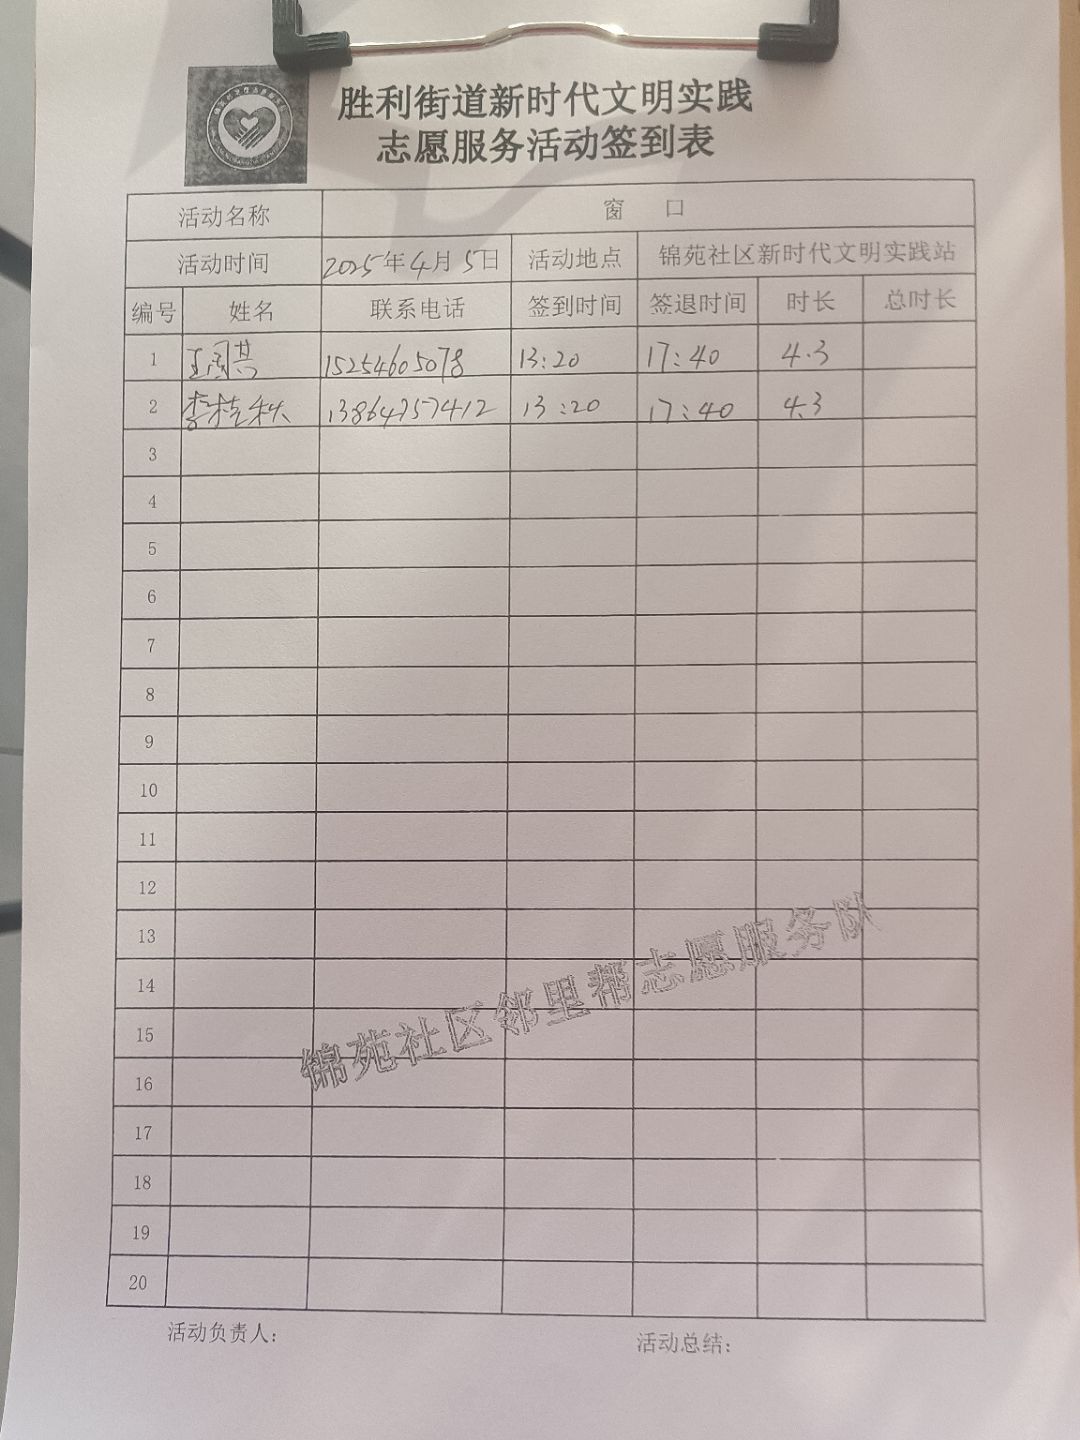 胜利街道新时代文明实践
志愿服务活动签到表
活动名称 窗 口
活动时间 2025年4月5日 活动地点 锦苑社区新时代文明实践站
编号 姓名 联系电话 签到时间 签退时间 时长 总时长
1 15254605078 13:20 17:40 4.3
2 李桂秋 13864757412 13:20 17:40 4.3
3
4
5
6
7
8
9
10
11
12
13
14
15
16
17
18
19
20
锦苑社区邻里帮志愿服务队
活动负责人: 活动总结: